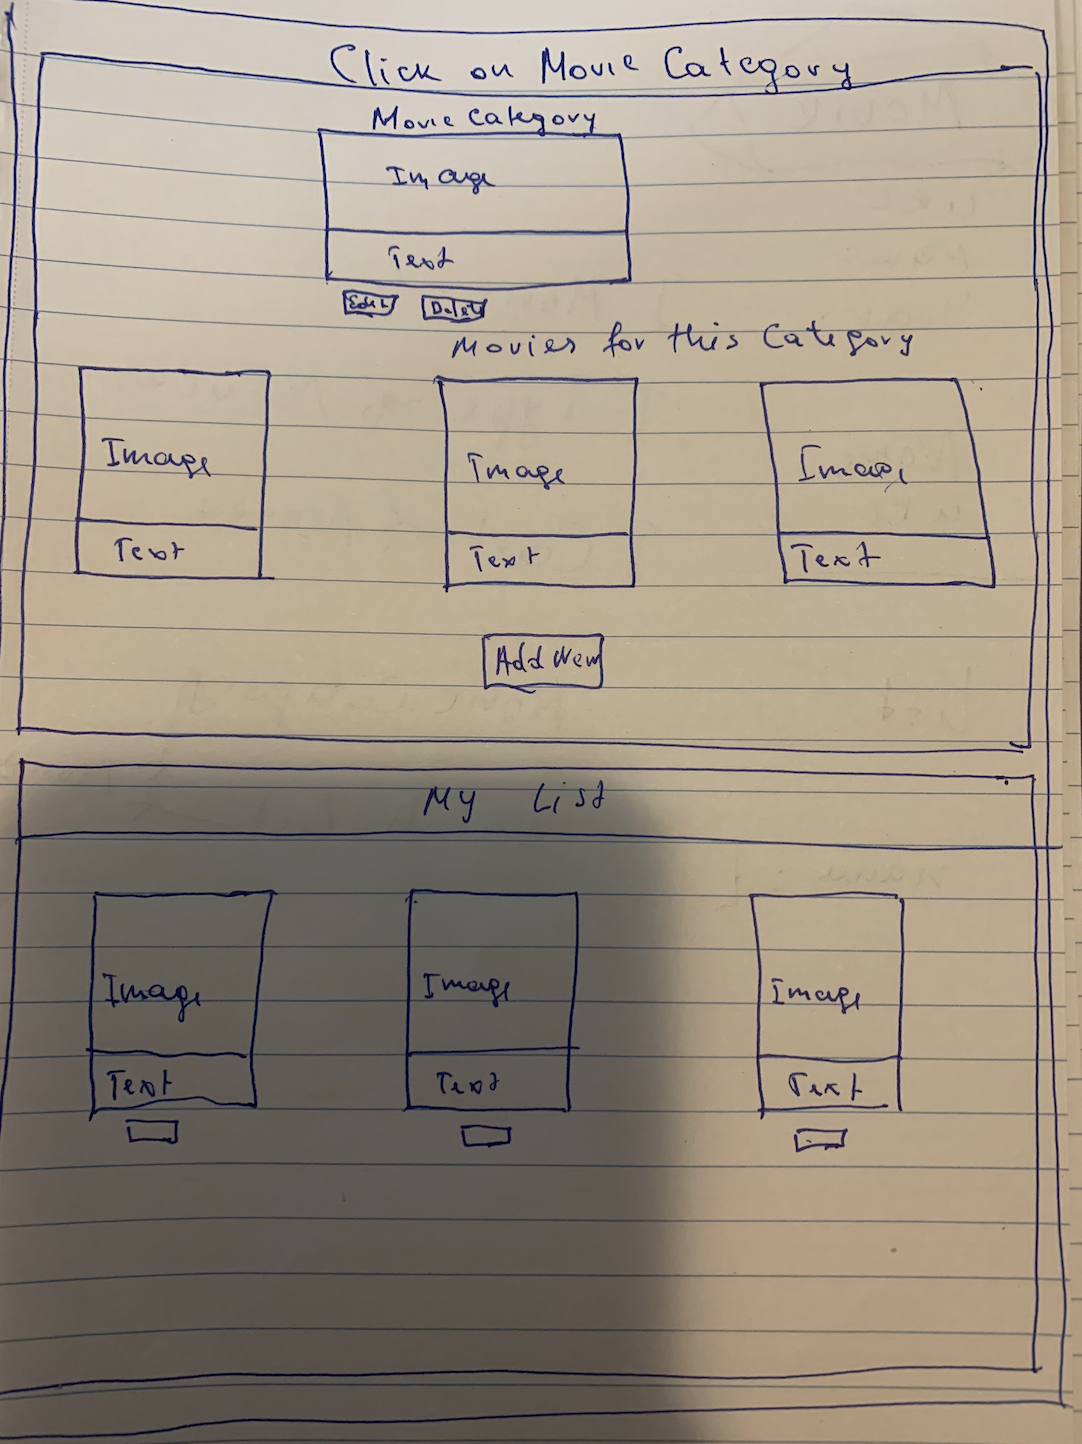 Click on Movie Category
Movie Category
Image
Text
Edit Delete
Movies for this Category
Image Image Image
Text Text Text
Add New
My List
Image Image Image
Text Text Text